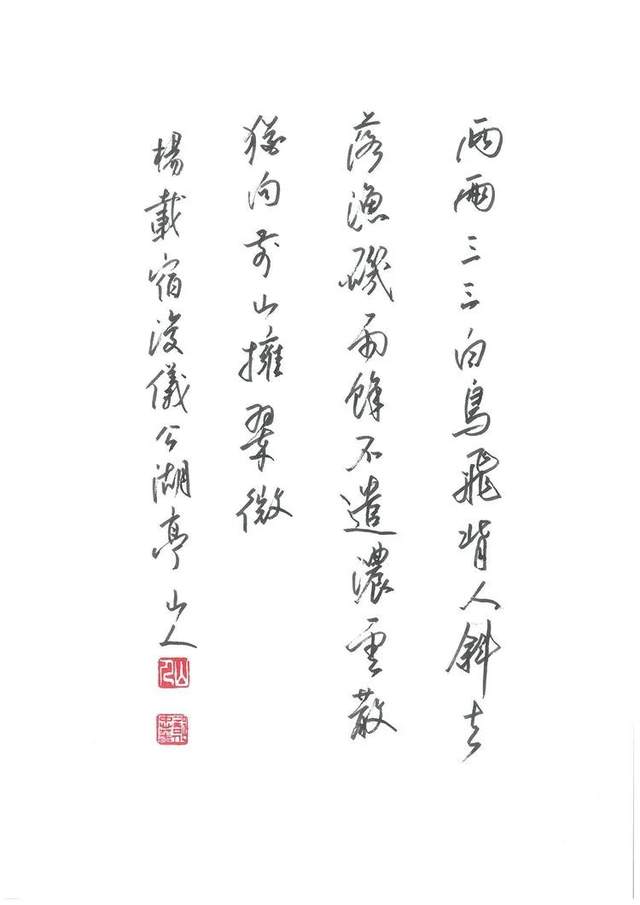 两兩三三白鳥飛背人斜去
落漁磯雨餘不遣濃雲散
猶向前山擁翠微
楊載宿浚儀公湖亭 山人
山人